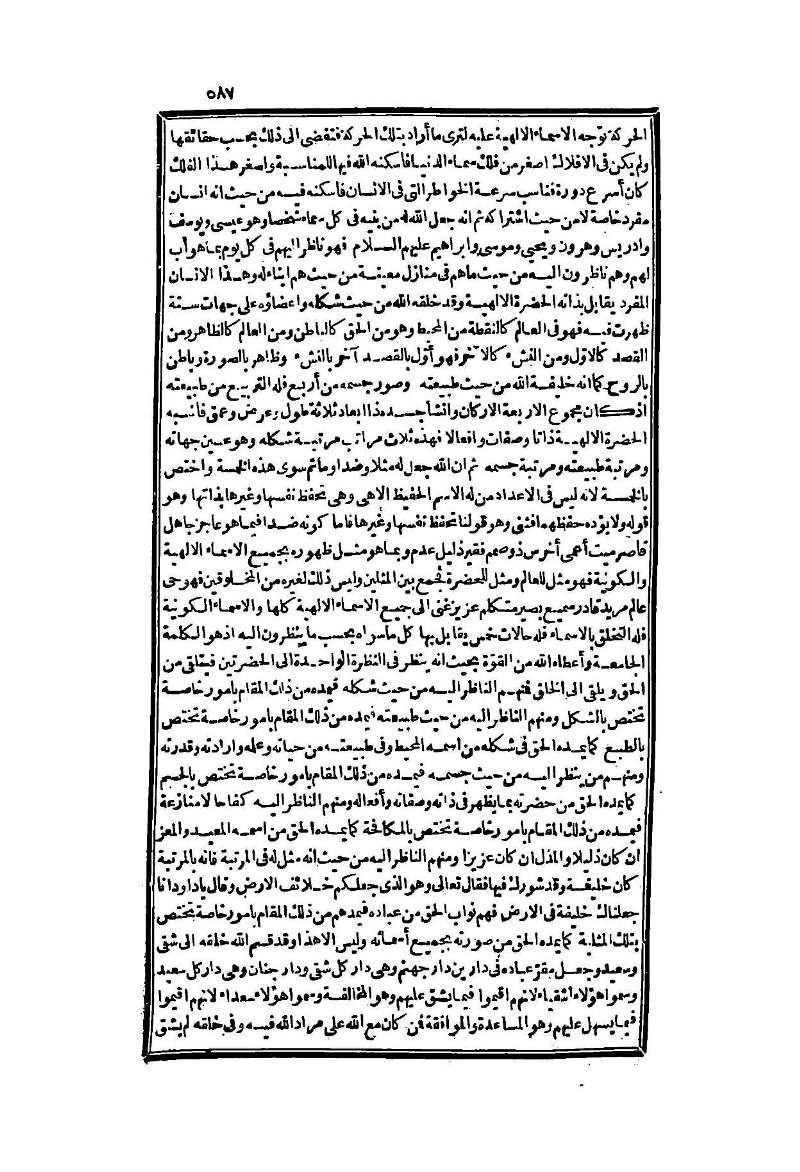 ٥٨٧
الحركة توجه الاسماء الالهية عليه لترى ما أراد بتلك الحركة فتقضى الى ذلك بحسب حقائقها
ولم يكن فى الافلاك اصغر من فلك سماء الدنيا فاسكنه الله فيها للمناسبة واصغر هذا الفلك
كان أسرع دورة فناسب سرعة الخواطر التى فى الانسان فاسكنه فيه من حيث انه انسان
مفرد خاصة لا من حيث اشتراكه ثم انه جعل الله له من بنيه فى كل سماء شخصا وهو عيسى ويوسف
وادريس وهرون ويحيى وموسى وابراهيم عليهم السلام فهو ناظر اليهم فى كل يوم بما هو أب
لهم وهم ناظرون اليه من حيث ما هم فى منازل معينة من حيث هم ابناء له وهذا الانسان
المفرد يقابل بذاته الحضرة الالهية وقد خلقه الله من حيث شكله واعضاؤه على جهات ستة
ظهرت فيه فهو فى العالم كالنقطة من المحيط وهو من الحق كالباطن ومن العالم كالظاهر ومن
القصد كالاول ومن النشء كالآخر فهو أول بالقصد آخر بالنشء وظاهر بالصورة وباطن
بالروح كما انه خليفة الله من حيث طبيعته وصور جسمه من أربع فله التربيع من طبيعته
اذ كان مجموع الاربعة الاركان وانشأ جسده ذا ابعاد ثلاثة طول وعرض وعمق فاشبه
الحضرة الالهية ذاتا وصفات وافعالا فهذه ثلاث مراتب مرتبة شكله وهو عين جهاته
ومرتبة طبيعته ومرتبة جسمه ثم ان الله جعل له مثلا وضدا وما ثم سوى هذه الخمسة واختص
بالخمسة لانه ليس فى الاعداد من له الاسم الحفيظ الا هى وهى تحفظ نفسها وغيرها بذاتها وهو
قوله ولا يؤده حفظهما فثنى وهو قولنا تحفظ نفسها وغيرها فاما كونه ضدا فبما هو عاجز جاهل
قاصر ميت أعمى أخرس ذو صمم فقير ذليل عدم وبما هو مثل ظهوره بجميع الاسماء الالهية
والكونية فهو مثل للعالم ومثل للحضرة فجمع بين المثلين وليس ذلك لغيره من المخلوقين فهو حى
عالم مريد قادر سميع بصير متكلم عزيز غنى الى جميع الاسماء الالهية كلها والاسماء الكونية
فله التخلق بالاسماء فله حالات خمس يقابل بها كل ما سواه بحسب ما ينظرون اليه اذ هو الكلمة
الجامعة وأعطاه الله من القوة بحيث انه ينظر فى النظرة الواحدة الى الحضرتين فيتلقى من
الحق ويلقى الى الخلق فمنهم الناظر اليه من حيث شكله فيمده من ذلك المقام بأمور خاصة
تختص بالشكل ومنهم الناظر اليه من حيث طبيعته فيمده من ذلك المقام بامور خاصة تختص
بالطبع كما يمده الحق فى شكله من اسمه المحيط وفى طبيعته من حياته وعلمه وارادته وقدرته
ومنهم من ينظر اليه من حيث جسمه فيمده من ذلك المقام بامور خاصة تختص بالجسم
كما يمده الحق من حضرته بما يظهر فى ذاته وصفاته وأفعاله ومنهم الناظر اليه كفاحا لامنازعة
فيمده من ذلك المقام بامور خاصة تختص بالمكافحة كما يمده الحق من اسمه المعيد والمعز
ان كان ذليلا والمذل ان كان عزيزا ومنهم الناظر اليه من حيث انه مثل له فى المرتبة فانه بالمرتبة
كان خليفة وقد شورك فيها فقال تعالى وهو الذى جعلكم خلائف الارض وقال ياداود انا
جعلناك خليفة فى الارض فهم نواب الحق من عباده فيمدهم من ذلك المقام بامور خاصة تختص
بتلك المثلية كما يمده الحق من صورته بجميع أسمائه وليس الا هذا وقد قسم الله خلقه الى شقى
وسعيد وجعل مقر عباده فى دارين دار جهنم وهى دار كل شقى ودار جنان وهى دار كل سعيد
وسموا هؤلاء أشقياء لانهم اقيموا فيما يشق عليهم وهو المخالفة وسموا هؤلاء سعداء لانهم اقيموا
فيما يسهل عليهم وهو المساعدة والموافقة فمن كان مع الله على مراد الله فيه وفى خلقه لم يشق